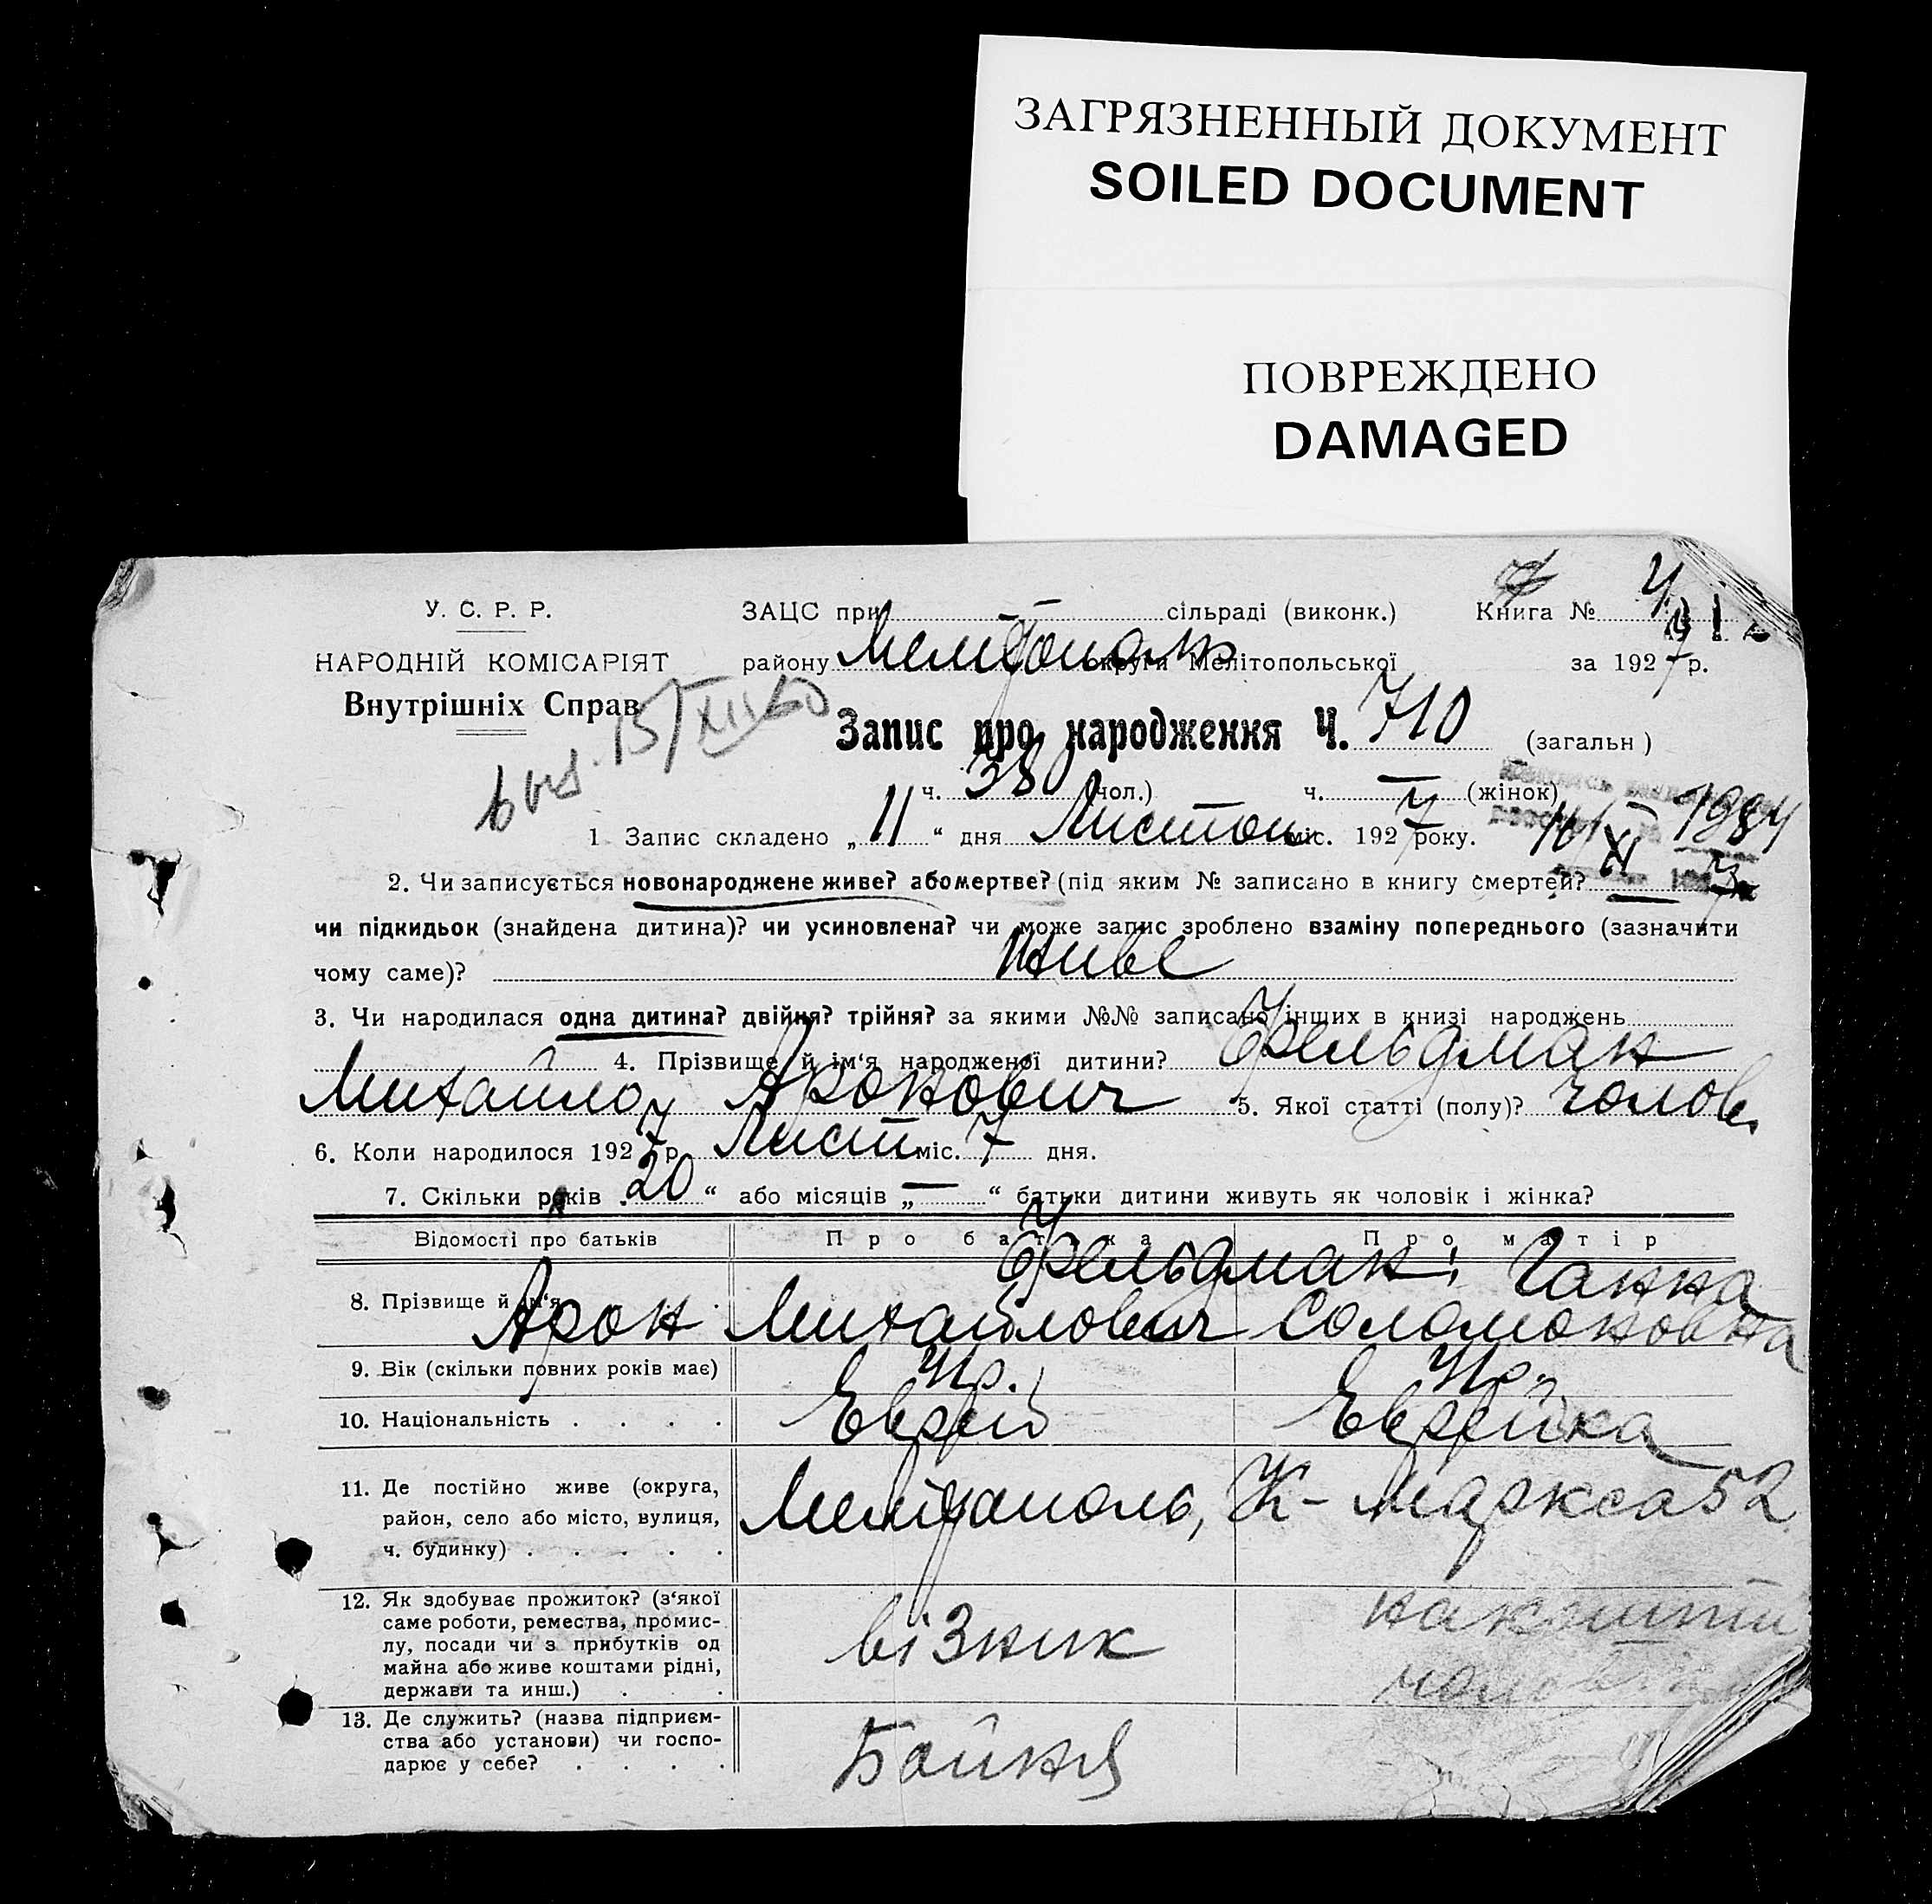 ЗАГРЯЗНЕННЫЙ ДОКУМЕНТ
SOILED DOCUMENT
ПОВРЕЖДЕНО
DAMAGED
У. С. Р. Р.
НАРОДНІЙ КОМІСАРІЯТ
Внутрішніх Справ
15/XII 60
ЗАЦС при — сільраді (виконк.) Книга № 4
району Мелітополь округи Мелітопольської за 1927 р.
Запис про народження Ч. 710 (загальн)
ч. 380 (чол.) ч. — (жінок)
1. Запис складено „11“ дня Листоп міс. 1927 року.
2. Чи записується новонароджене живе? або мертве? (під яким № записано в книгу смертей?
чи підкидьок (знайдена дитина)? чи усиновлена? чи може запис зроблено взаміну попереднього (зазначити
чому саме)? живе
3. Чи народилася одна дитина? двійня? трійня? за якими №№ записано інших в книзі народжень
4. Прізвище й ім‘я народженої дитини? Фельдман
Михайло Аронович 5. Якої статті (полу)? чолов.
6. Коли народилося 1927 р. Лист міс. 7 дня.
7. Скільки років „20“ або місяців „—“ батьки дитини живуть як чоловік і жінка?
Відомості про батьків Про батька Про матір
8. Прізвище й ім‘я Фельдман: Ганна
Арон Михайлович Соломоновна
9. Вік (скільки повних років має)
10. Національність Еврей Еврейка
11. Де постійно живе (округа,
район, село або місто, вулиця,
ч. будинку) Мелітополь, К-Маркса 52
12. Як здобуває прожиток? (з‘якої
саме роботи, ремества, промис-
лу, посади чи з прибутків од
майна або живе коштами рідні,
держави та инш.) візник
13. Де служить? (назва підприєм-
ства або установи) чи госпо-
дарює у себе? Бойня